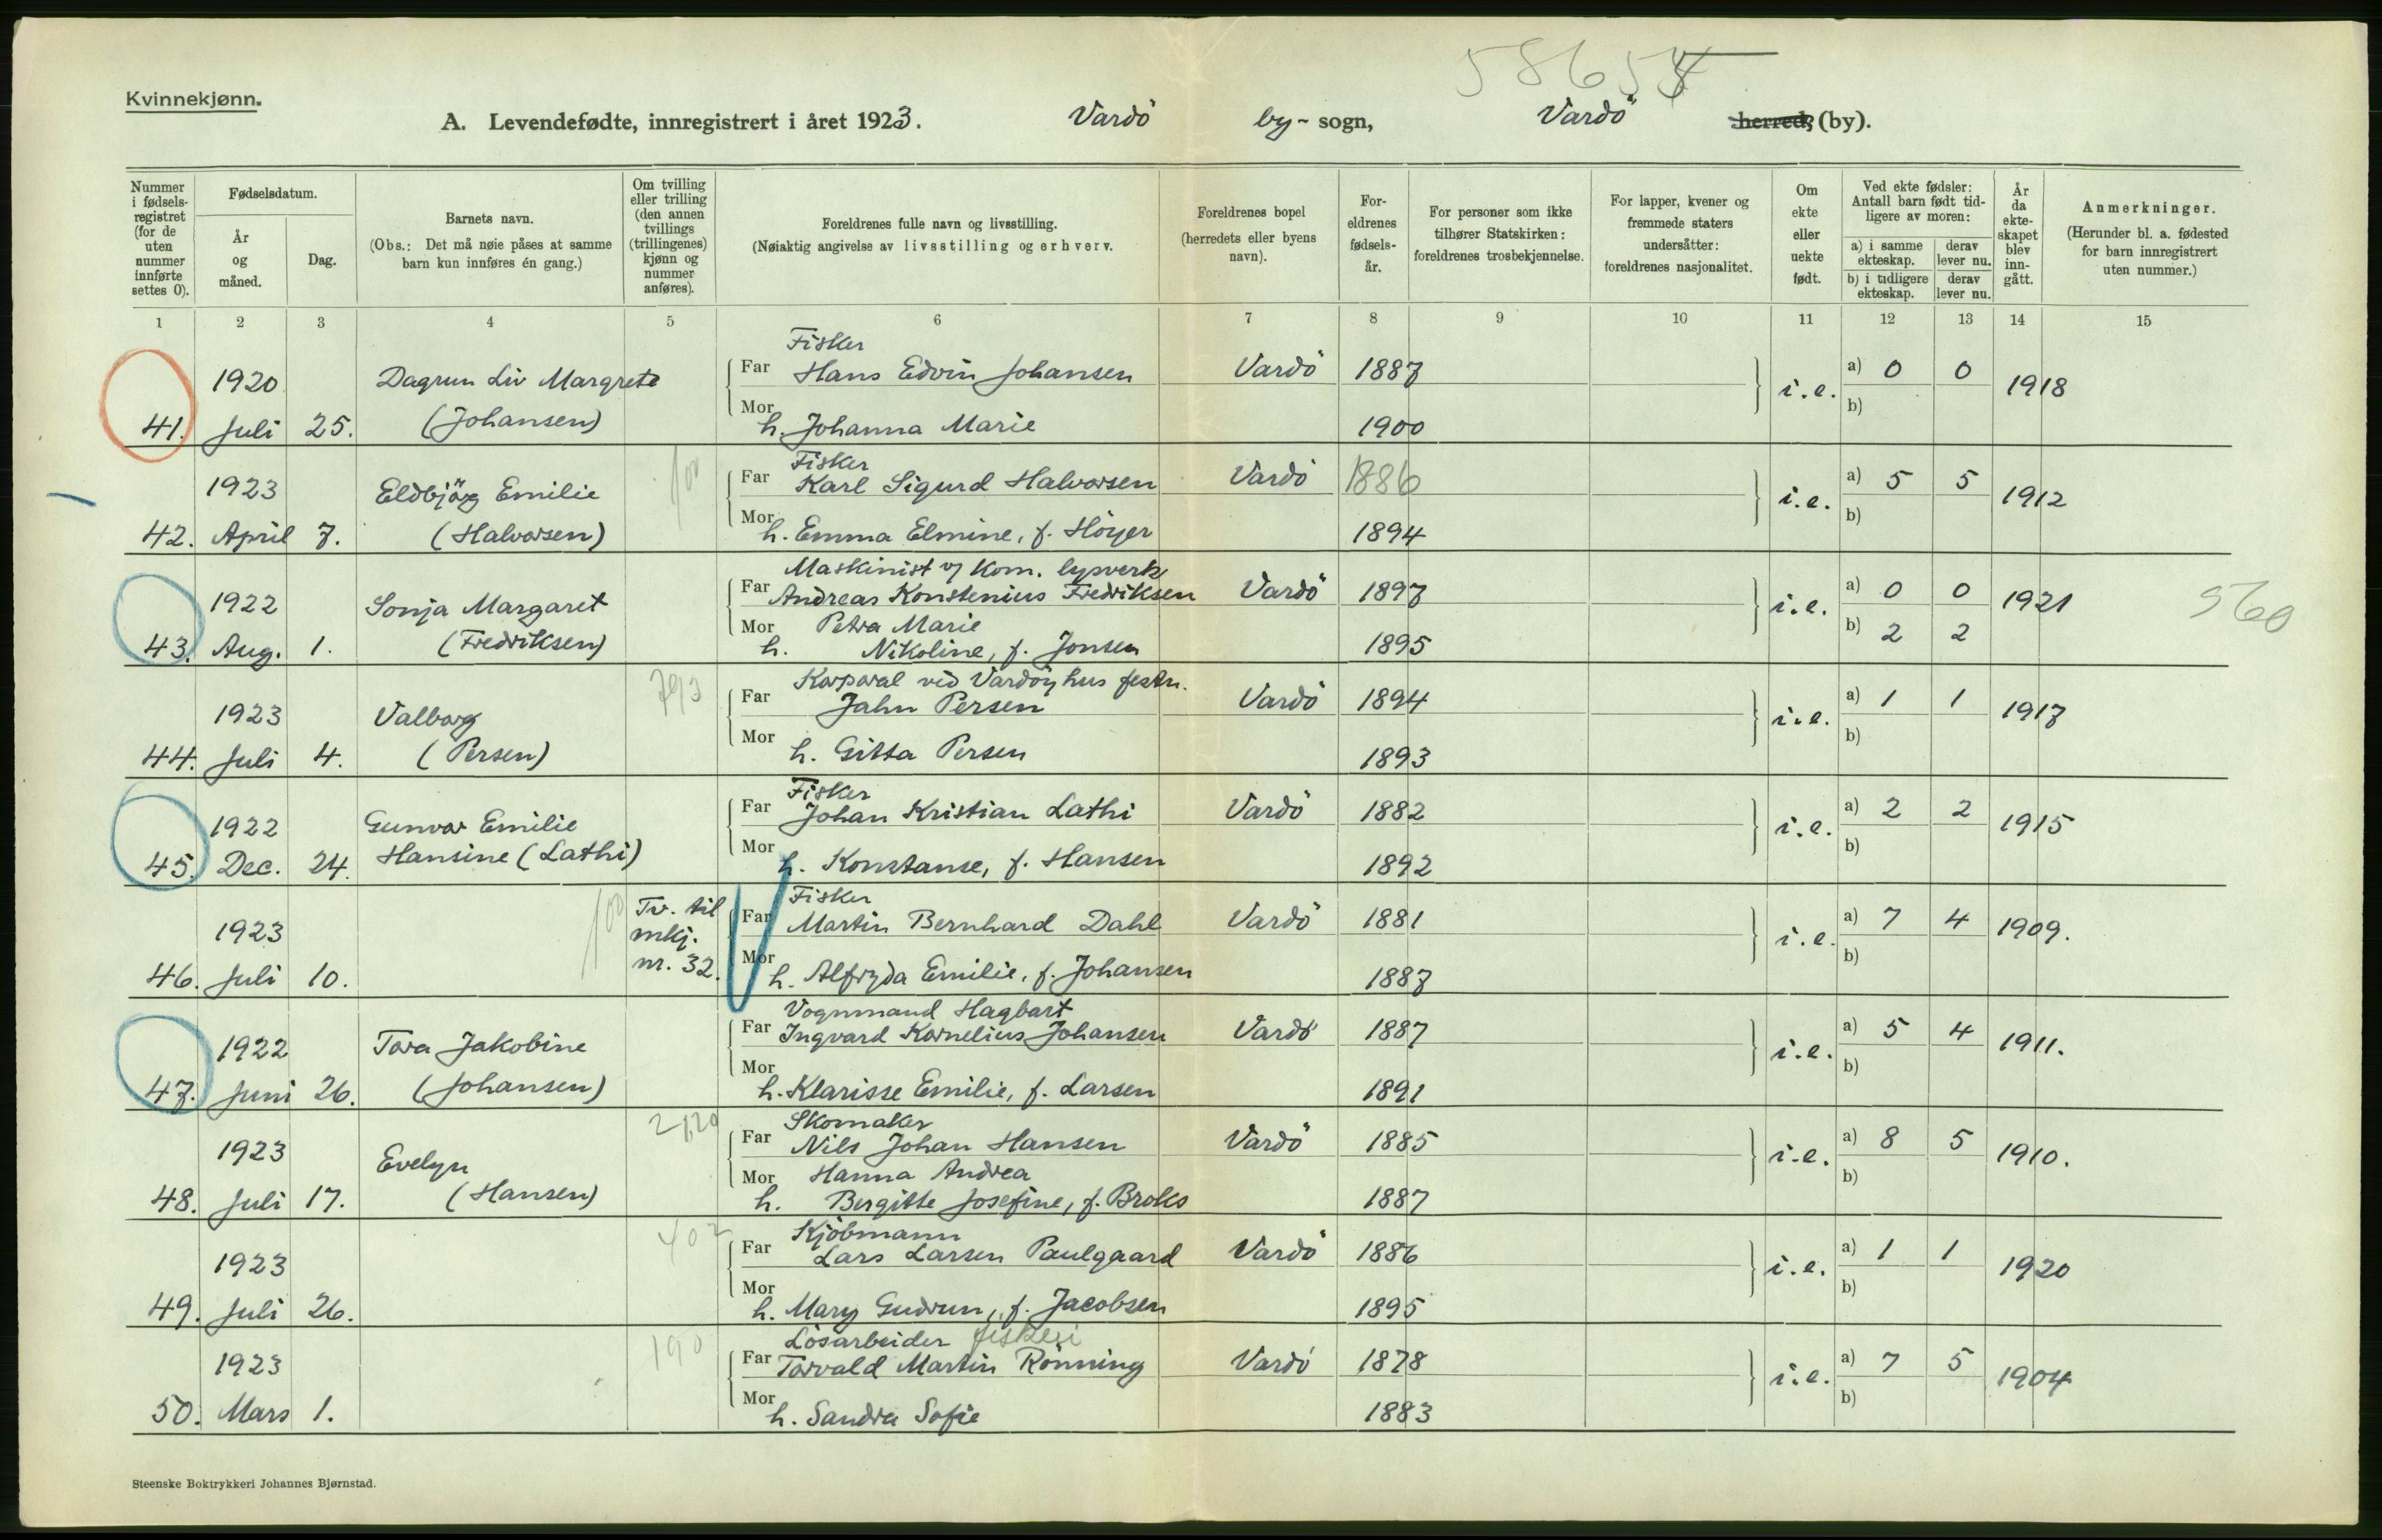 Kvinnekjønn.
5865
A. Levendefødte, innregistrert i året 1923. Vardö by- sogn, Vardö herred, (by).
Nummer i fødsels-registret (for de uten nummer innførte settes 0).
Fødselsdatum.
År og måned.
Dag.
Barnets navn.
(Obs.: Det må nøie påses at samme barn kun innføres én gang.)
Om tvilling eller trilling (den annen tvillings (trillingenes) kjønn og nummer anføres).
Foreldrenes fulle navn og livsstilling.
(Nøiaktig angivelse av livsstilling og erhverv.
Foreldrenes bopel (herredets eller byens navn).
For-eldrenes fødsels-år.
For personer som ikke tilhører Statskirken: foreldrenes trosbekjennelse.
For lapper, kvener og fremmede staters undersåtter: foreldrenes nasjonalitet.
Om ekte eller uekte født.
Ved ekte fødsler: Antall barn født tid-ligere av moren:
a) i samme ekteskap. derav lever nu.
b) i tidligere ekteskap. derav lever nu.
År da ekte-skapet blev inn-gått.
Anmerkninger.
(Herunder bl. a. fødested for barn innregistrert uten nummer.)
1 2 3 4 5 6 7 8 9 10 11 12 13 14 15
Fisker
1920 Dagrun Liv Margrete Far Hans Edvin Johansen Vardö 1887 i.e. a) 0 0 1918
41. Juli 25. (Johansen) Mor h. Johanna Marie 1900 b)
100 Fisker
1923 Eldbjörg Emilie Far Karl Sigurd Halvorsen Vardö 1886 i.e. a) 5 5 1912
42. April 7. (Halvorsen) Mor h. Emma Elmine, f. Höyer 1894 b)
Maskinist v/ Kom. lysverk
1922 Sonja Margaret Far Andreas Konstenius Fredriksen Vardö 1897 i.e. a) 0 0 1921 560
Mor Petra Marie b) 2 2
43. Aug. 1. (Fredriksen) h. Nikoline, f. Jonsen 1895
793 Korporal ved Vardöyhus festn.
1923 Valborg Far Jahn Persen Vardö 1894 i.e. a) 1 1 1917
44. Juli 4. (Persen) Mor h. Gitta Persen 1893 b)
Fisker
1922 Gunvor Emilie Far Johan Kristian Lathi Vardö 1882 i.e. a) 2 2 1915
45. Dec. 24. Hansine (Lathi) Mor h. Konstanse, f. Hansen 1892 b)
100 Tv. til Fisker
1923 mkj. Far Martin Bernhard Dahl Vardö 1881 i.e. a) 7 4 1909.
46. Juli 10. nr. 32. Mor h. Alfryda Emilie, f. Johansen 1887 b)
Vognmand Hagbart
1922 Tora Jakobine Far Ingvard Kornelius Johansen Vardö 1887 i.e. a) 5 4 1911.
47. Juni 26. (Johansen) Mor h. Klarisse Emilie, f. Larsen 1891 b)
Skomaker
1923 Evelyn Far Nils Johan Hansen Vardö 1885 i.e. a) 8 5 1910.
Mor Hanna Andrea b)
48. Juli 17. (Hansen) h. Bergitte Josefine, f. Broks 1887
402 Kjöbmann
1923 Far Lars Larsen Paulgaard Vardö 1886 i.e. a) 1 1 1920
49. Juli 26. Mor h. Mary Gudrun, f. Jacobsen 1895 b)
190 Lösarbeider fiskeri
1923 Far Torvald Martin Rönning Vardö 1878 i.e. a) 7 5 1904
50. Mars 1. Mor h. Sandra Sofie 1883 b)
Steenske Boktrykkeri Johannes Bjørnstad.